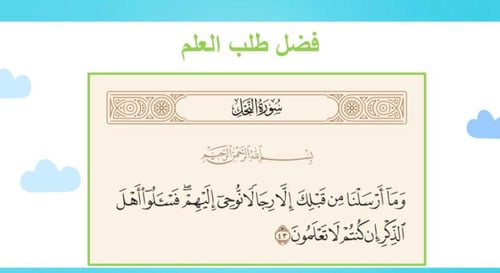 فضل طلب العلم
سُورَةُ النَّحْلِ
بِسْمِ اللَّهِ الرَّحْمَٰنِ الرَّحِيمِ
وَمَآ أَرْسَلْنَا مِن قَبْلِكَ إِلَّا رِجَالًا نُّوحِىٓ إِلَيْهِمْ ۖ فَسْـَٔلُوٓا۟ أَهْلَ
ٱلذِّكْرِ إِن كُنتُمْ لَا تَعْلَمُونَ ٤٣